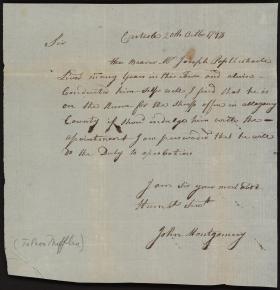 Carlisle 20th Octbr 1798
Sir
the Bearer Mr Joseph
lived many Years in this Town and always
Conducted him self well I find that he is
on the for the Shffs office in allegany
County if indulge him with the
appointment I am perswaded that he will
do the Duty to aprobation
I am Sir your most obdt
Humbl Servt
John Montgomery
(To Gov Mifflin)